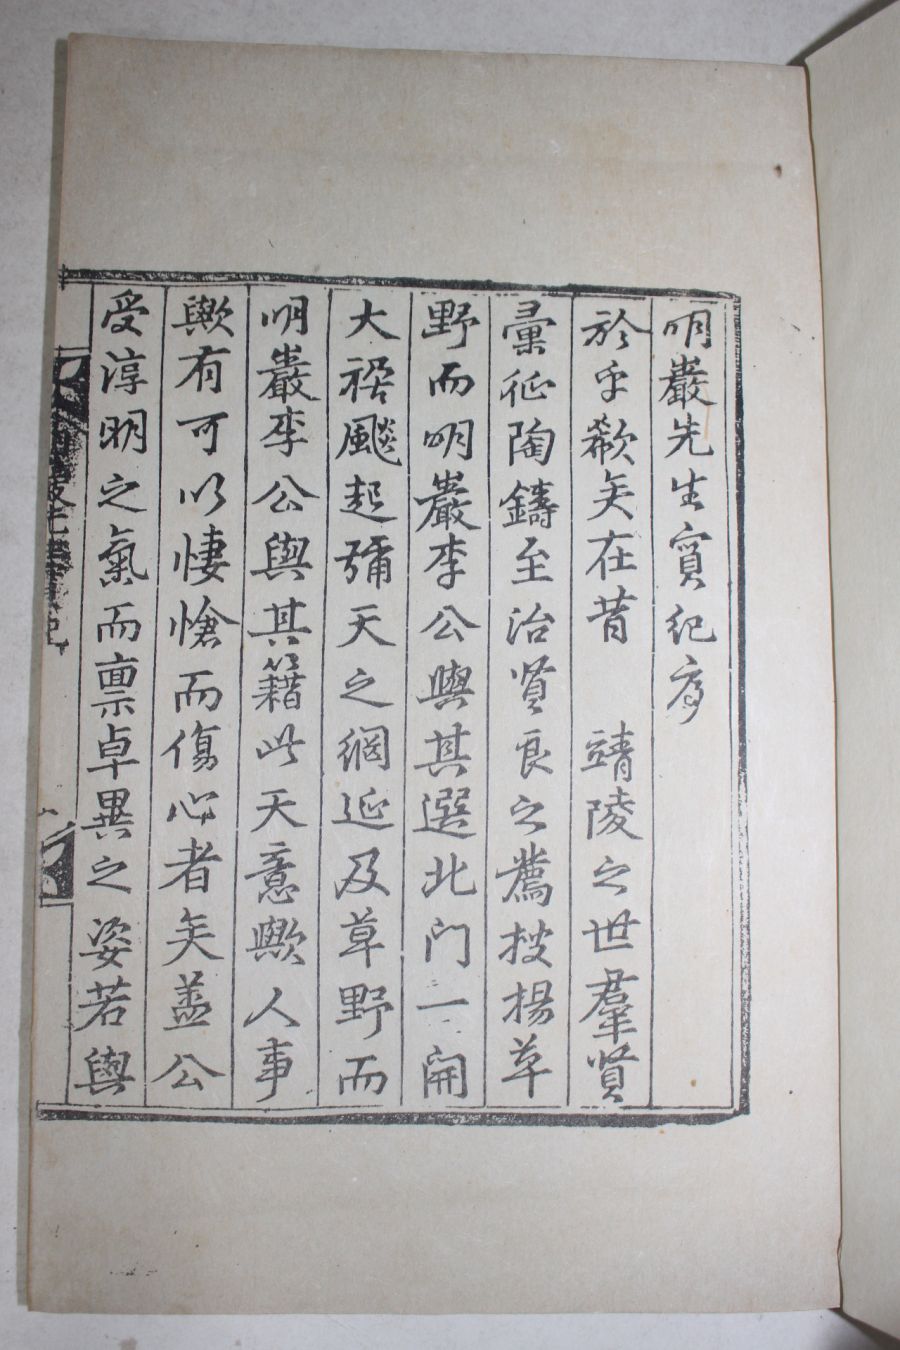 明巖先生實紀序
於乎欷矣在昔 靖陵之世羣賢
彙征陶鑄至治賢良之薦搜揚草
野而明巖李公與其選北門一開
大禍飈起彌天之網延及草野而
明巖李公與其籍此天意歟人事
歟有可以悽愴而傷心者矣盖公
受淳明之氣而禀卓異之姿若與
明巖先生實紀